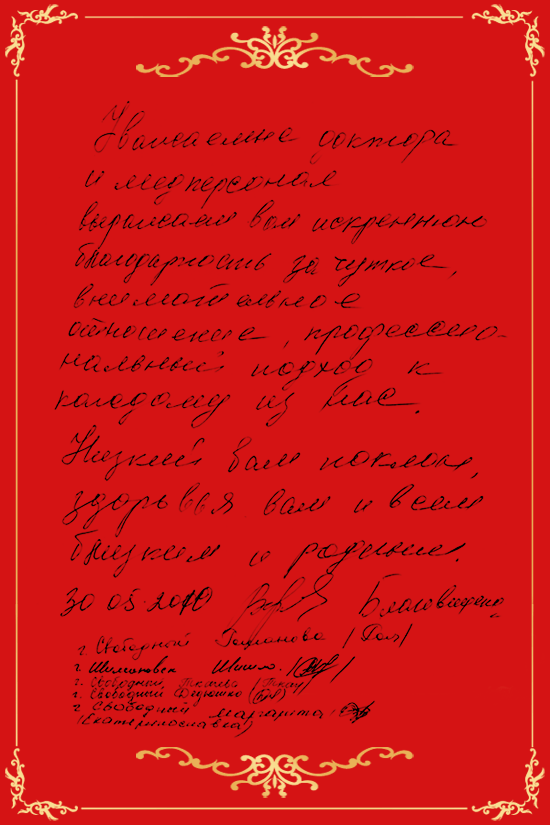 Уважаемые доктора
и медперсонал
выражаем вам искреннюю
благодарность за чуткое,
внимательное
отношение, профессио-
нальный подход к
каждому из нас.
Низкий вам поклон,
здоровья вам и всем
близким и родным.
30 05.2010
г. Свободный
г. Шимановск
г. Свободный Ткачева
г. Свободный
г Свободный Маргарита
(Екатеринославка)